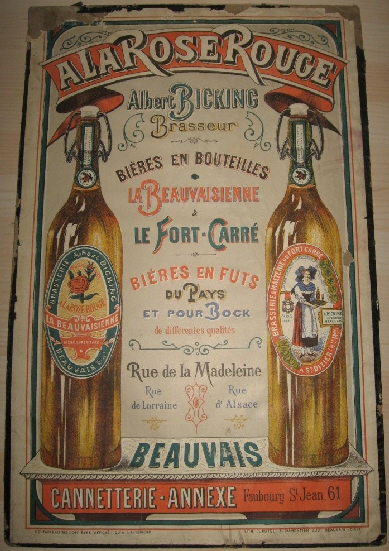 A LA ROSE ROUGE
Albert BICKING
Brasseur
BIÈRES EN BOUTEILLES
LA BEAUVAISIENNE
&
LE FORT-CARRÉ
BIÈRES EN FUTS
DU PAYS
ET POUR BOCK
de différentes qualités
Rue de la Madeleine
Rue de Lorraine
Rue d'Alsace
BEAUVAIS
CANNETTERIE-ANNEXE Faubourg St Jean, 61.
BRASSERIE Albert BICKING
A LA ROSE ROUGE
LA BEAUVAISIENNE
BEAUVAIS
BRASSERIE & MALTERIE DU FORT CARRÉ
A ST DIZIER